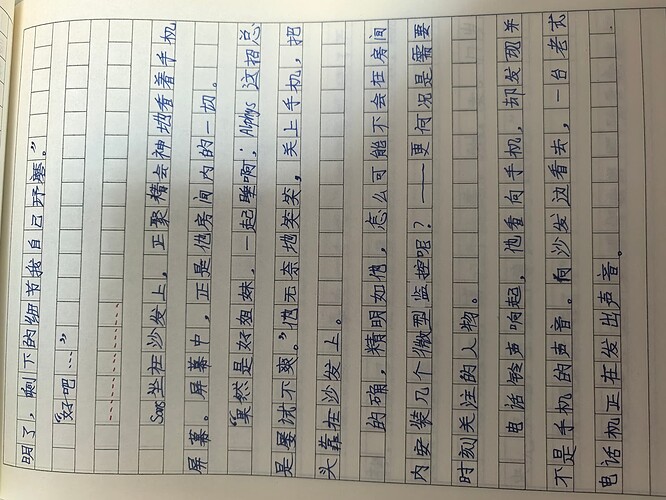 明了，剩下的细节我自己琢磨。”
“好吧……”
…………………
Sans坐在沙发上，正聚精会神地看着手机
屏幕。屏幕中，正是他房间内的一切。
“果然是好姐妹，一起睡啊；Alphys 这招总
是屡试不爽。”他无奈地笑笑，关上手机，把
头靠在沙发上。
的确，精明如他，怎么可能不会在房间
内安装几个微型监控呢？——更何况是需要
时刻关注的人物。
电话铃声响起，他看向手机，却发现并
不是手机的声音。向沙发边看去，一台老式
电话机正在发出声音。